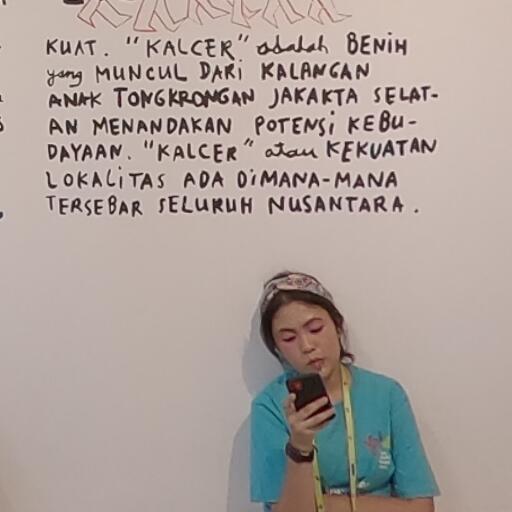 KUAT. "KALCER" adalah BENIH
yang MUNCUL DARI KALANGAN
ANAK TONGKRONGAN JAKAKTA SELAT-
AN MENANDAKAN POTENSI KEBU-
DAYAAN. "KALCER" atau KEKUATAN
LOKALITAS ADA DIMANA-MANA
TERSEBAR SELURUH NUSANTARA.